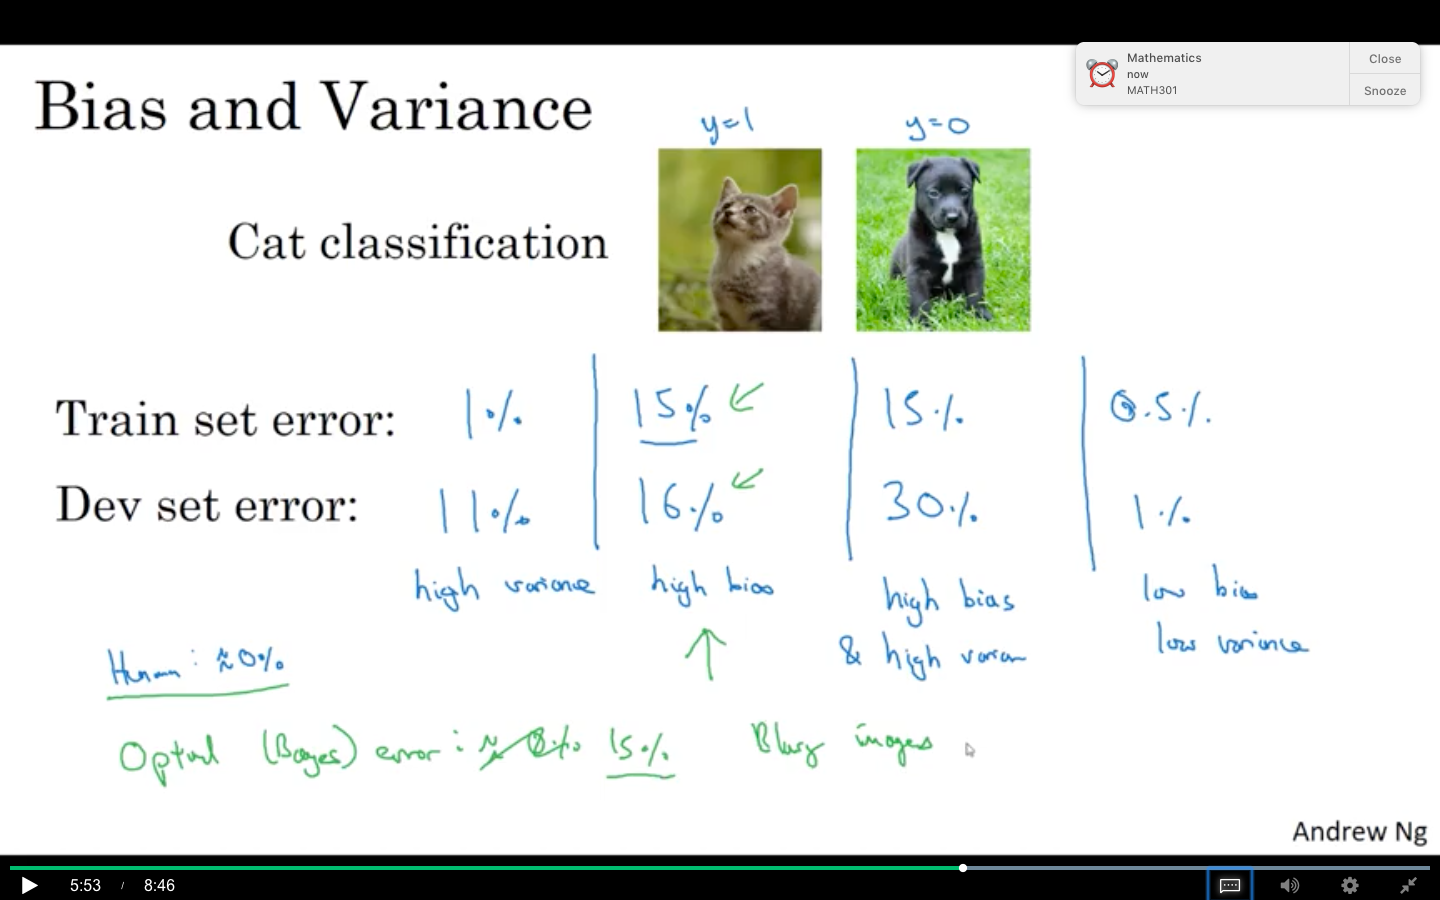 Mathematics
now
MATH301
Close
Snooze
Bias and Variance
y=1 y=0
Cat classification
Train set error: 1% 15% 15% 0.5%
Dev set error: 11% 16% 30% 1%
high variance high bias high bias low bias
& high varian low variance
Human: ≈0%
Optimal (Bayes) error: ≈0% 15% Blury images
Andrew Ng
5:53 / 8:46